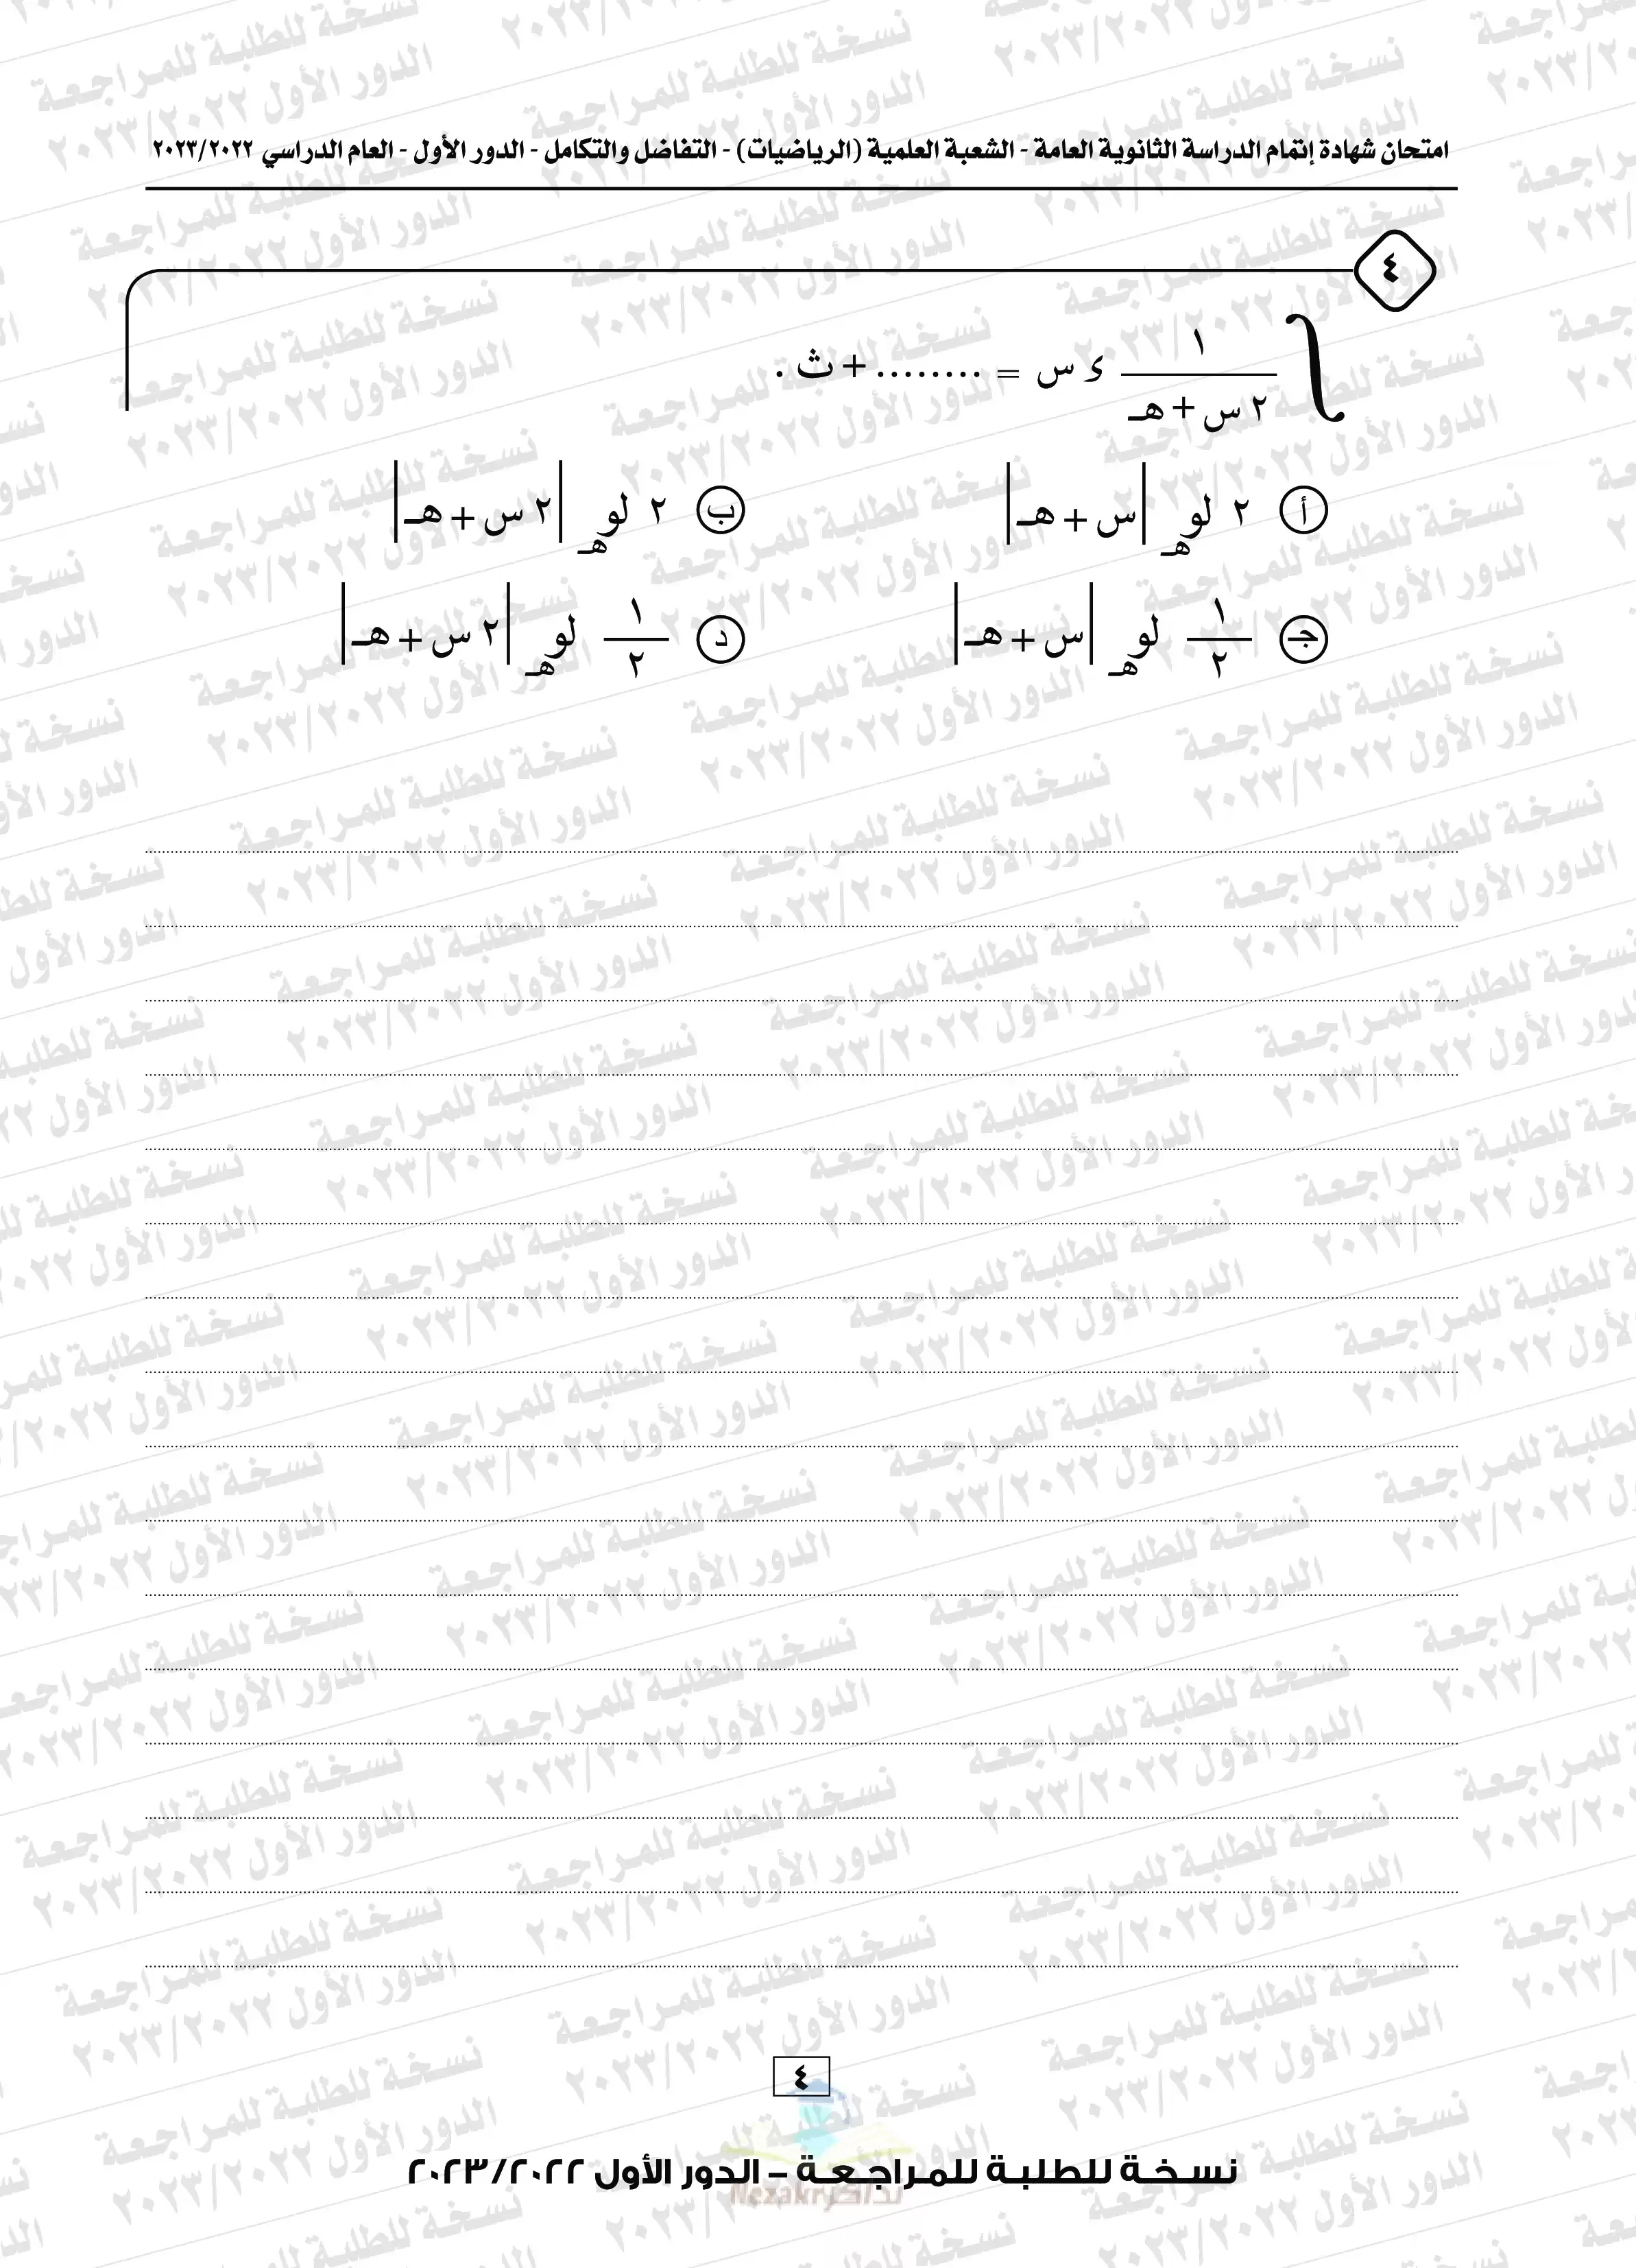 امتحان شهادة إتمام الدراسة الثانوية العامة - الشعبة العلمية (الرياضيات) - التفاضل والتكامل - الدور الأول - العام الدراسي ٢٠٢٣/٢٠٢٢
٤
∫ ١ / (٢ س + هـ) ء س = ........ + ث .
أ ٢ لو هـ |س + هـ| ب ٢ لو هـ |٢ س + هـ|
جـ ١/٢ لو هـ |س + هـ| د ١/٢ لو هـ |٢ س + هـ|
٤
نسخة للطلبة للمراجعة – الدور الأول ٢٠٢٣/٢٠٢٢
نذاكر Nezakr
نسخة للطلبة للمراجعة
الدور الأول ٢٠٢٣/٢٠٢٢